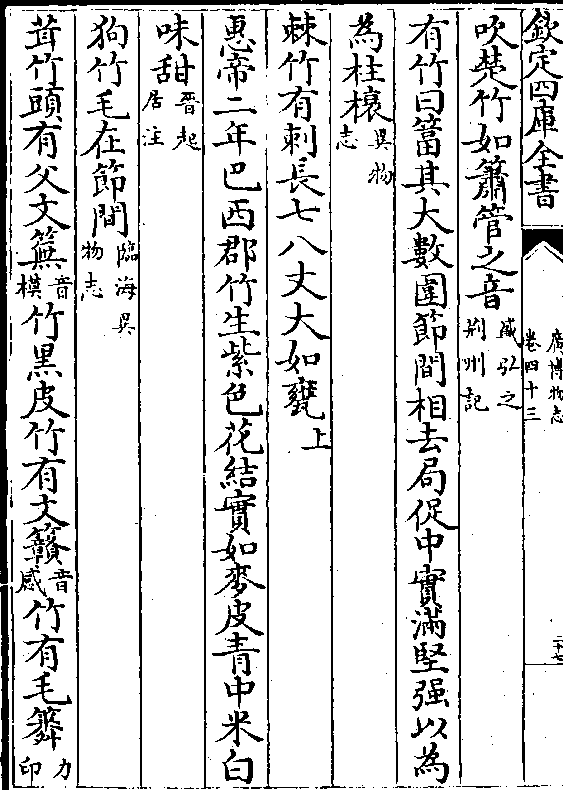 欽定四庫全書
廣博物志
卷四十三
吹楚竹如簫管之音盛弘之荆州記
有竹曰簹其大數圍節間相去局促中實滿堅强以為
為柱榱異物志
棘竹有刺長七八丈大如甕上
惠帝二年巴西郡竹生紫色花結實如麥皮青中米白
味甜晋起居注
狗竹毛在節間臨海異物志
茸竹頭有父文音模竹黑皮竹有文音感竹有毛力印